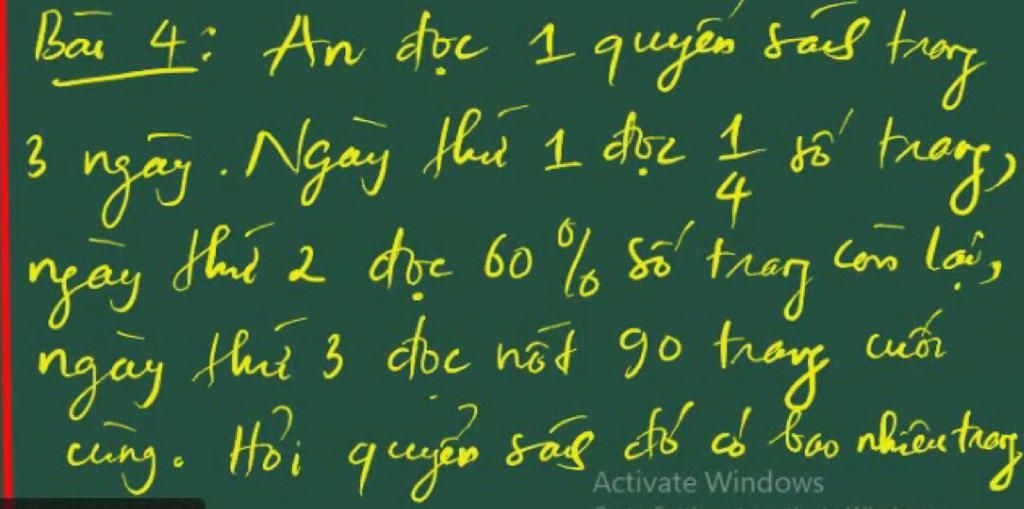 Bài 4: An đọc 1 quyển sách trong
3 ngày. Ngày thứ 1 đọc 1/4 số trang,
ngày thứ 2 đọc 60% số trang còn lại,
ngày thứ 3 đọc nốt 90 trang cuối
cùng. Hỏi quyển sách đó có bao nhiêu trang
Activate Windows